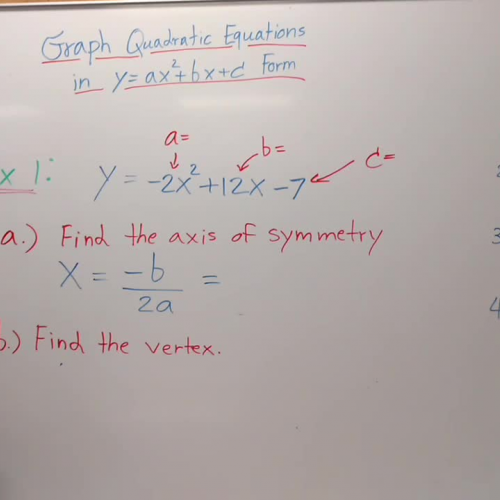 Graph Quadratic Equations
in y=ax²+bx+c Form
a=
b=
c=
x 1:
y = -2x²+12x-7
a.) Find the axis of symmetry
x = -b/2a =
b.) Find the vertex.
3
4